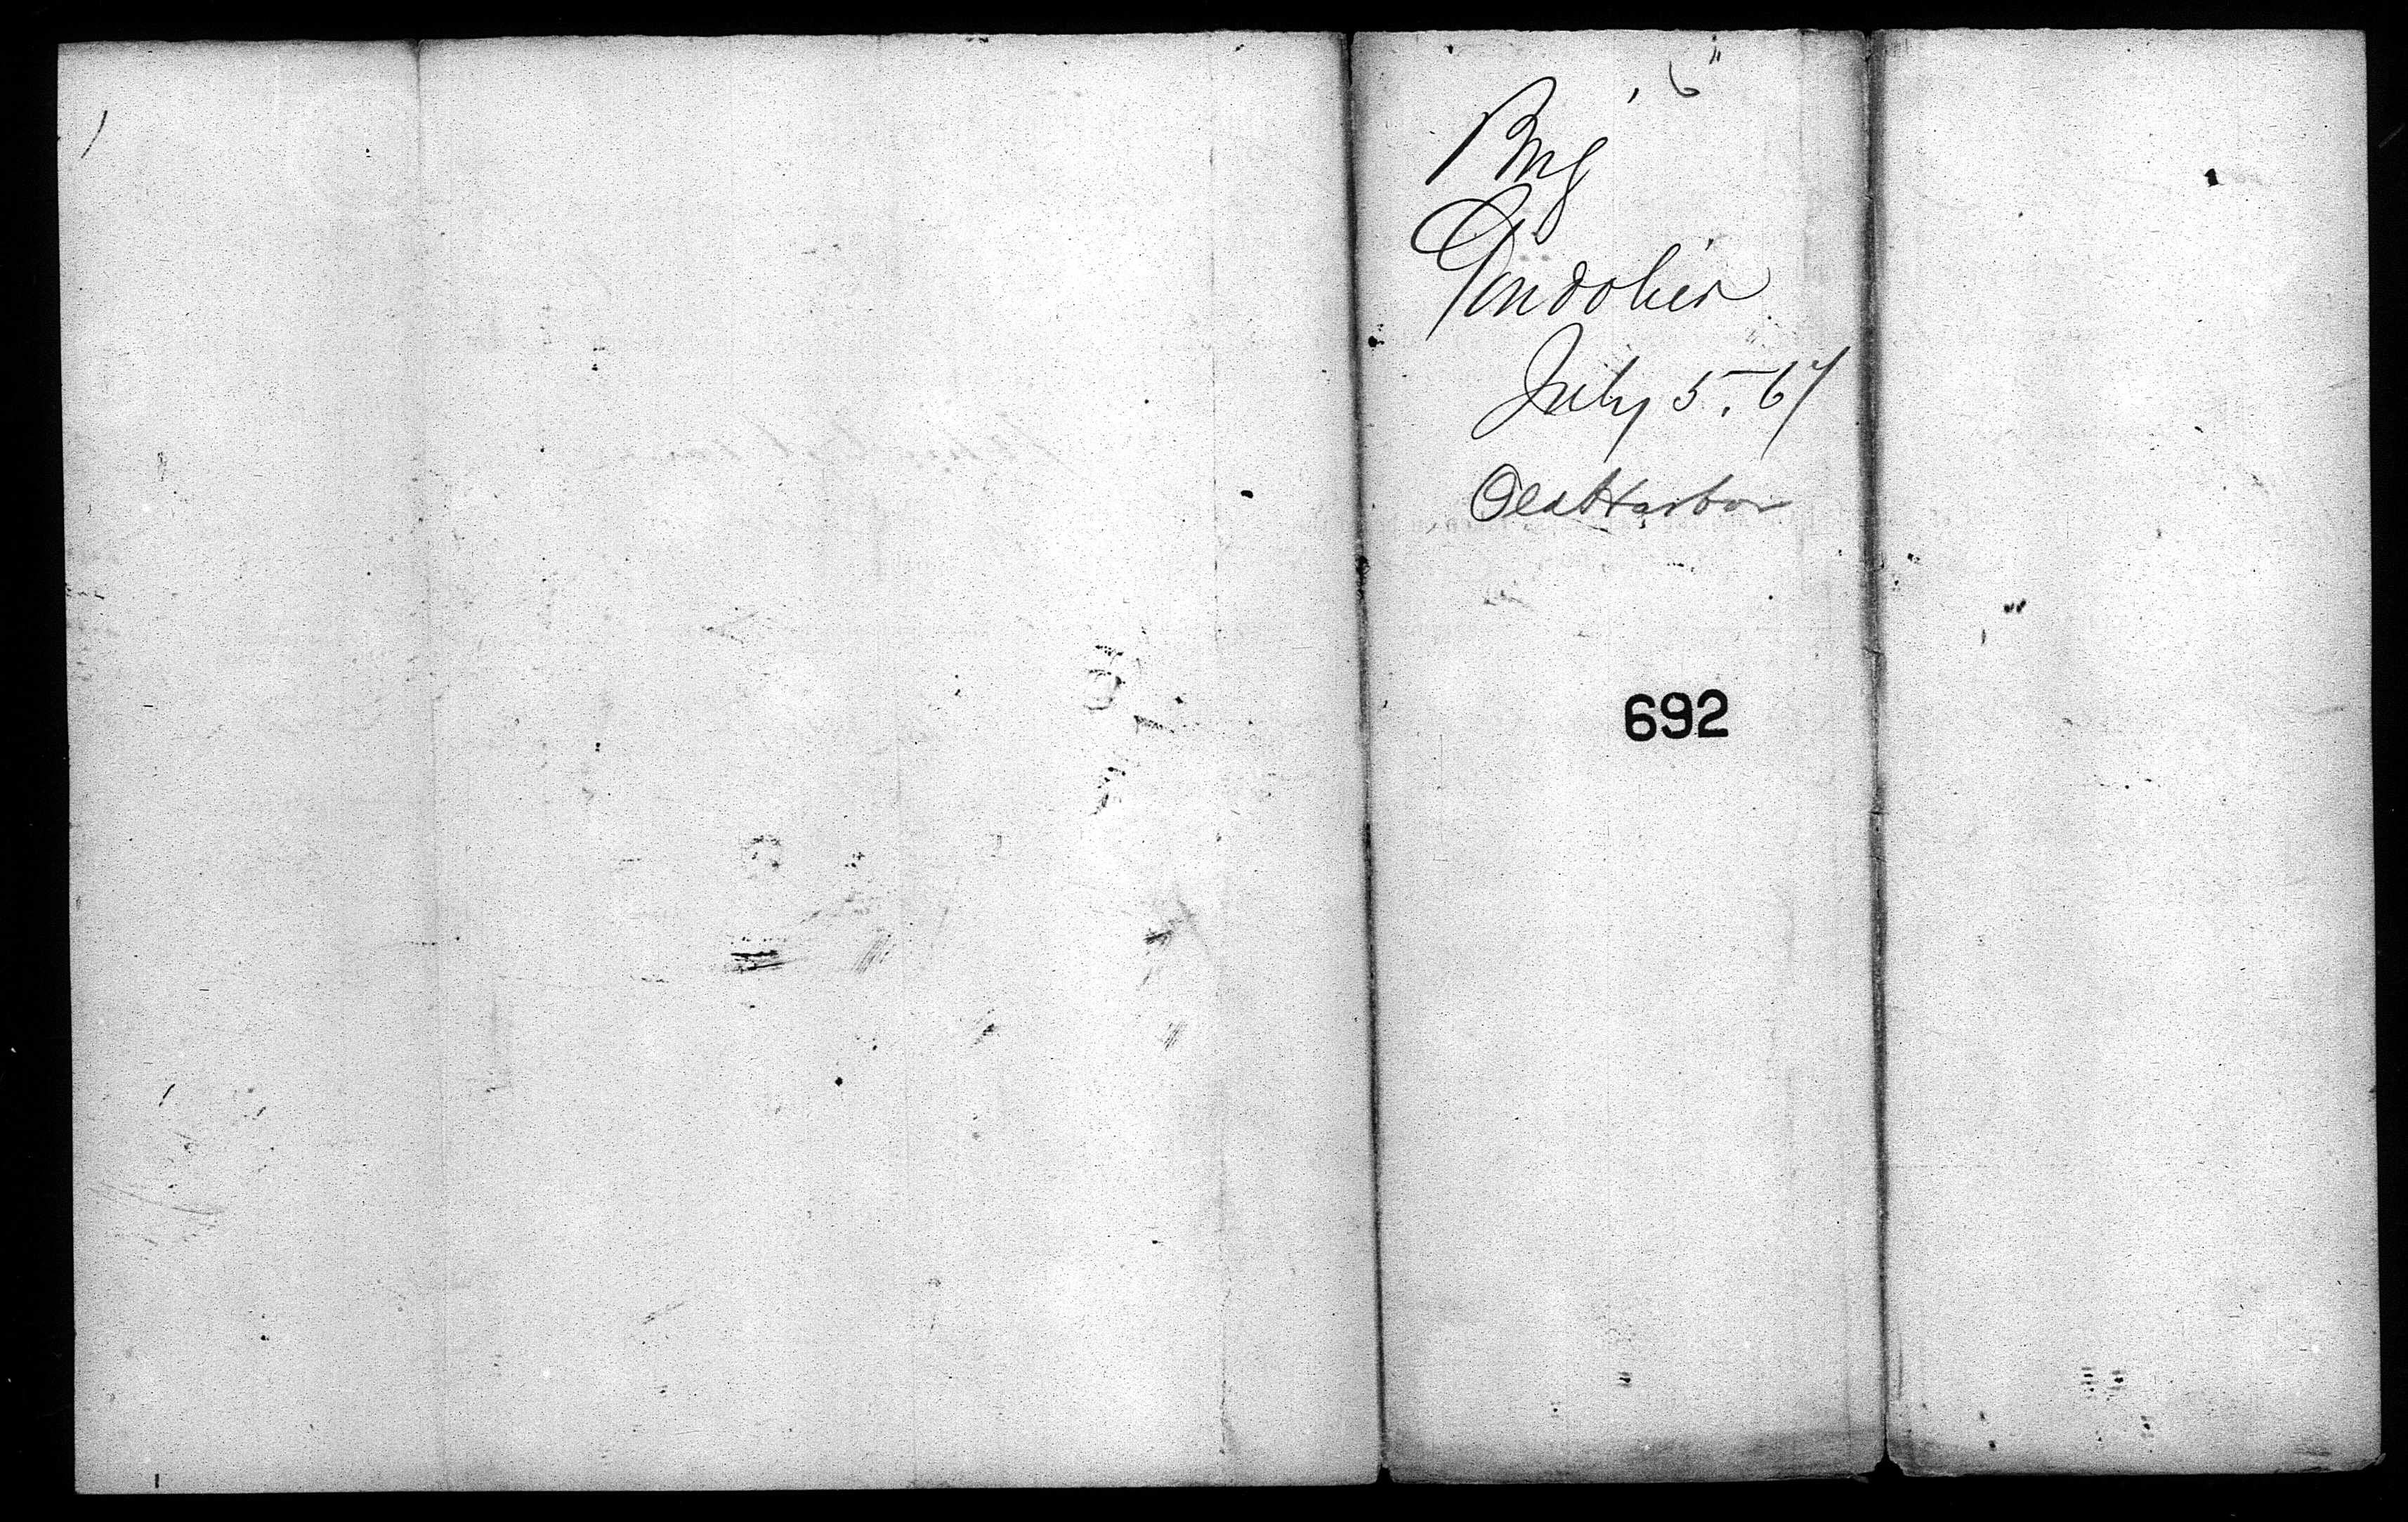 Brig
Gondolier
July 5. 67
Old Harbor
692